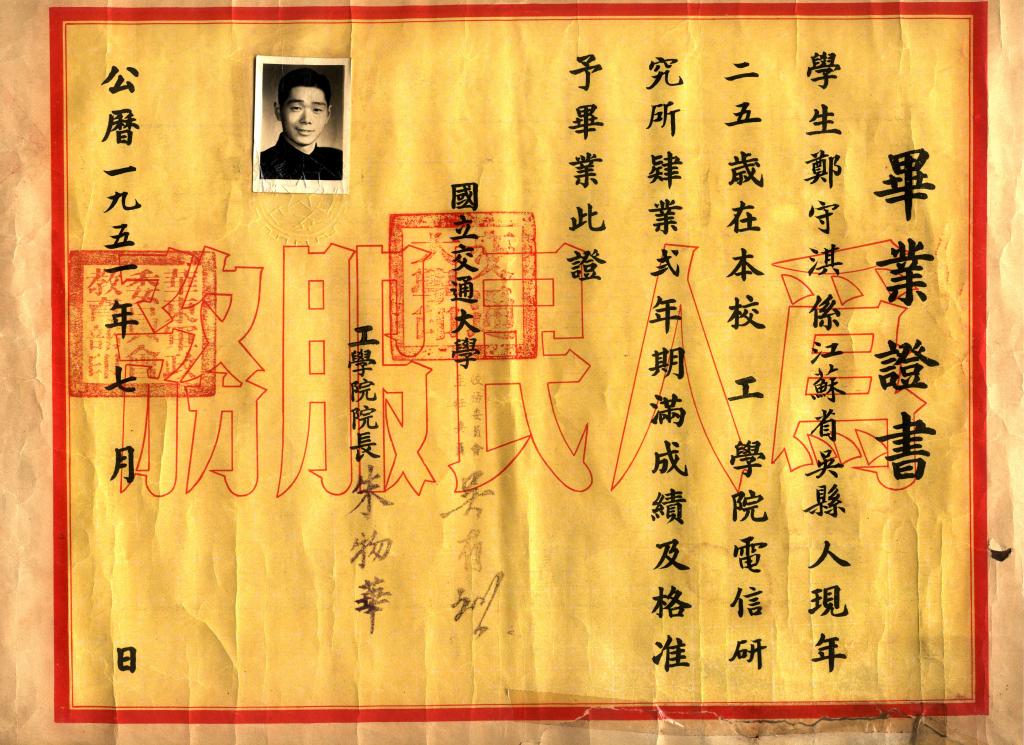 畢業證書
學生鄭守淇係江蘇省吳縣人現年
二五歲在本校工學院電信研
究所肄業弍年期滿成績及格准
予畢業此證
國立交通大學
校務委員會
主任委員
吳有訓
工學院院長朱物華
公曆一九五一年七月日
為人民服務